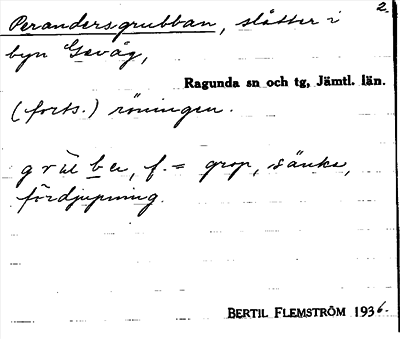 2.
Perandersgrubban, slåtter i
byn Gevåg,
Ragunda sn och tg, Jämtl. län.
(forts.) röningen.
f. = grop, sänka,
fördjupning.
BERTIL FLEMSTRÖM 1936.